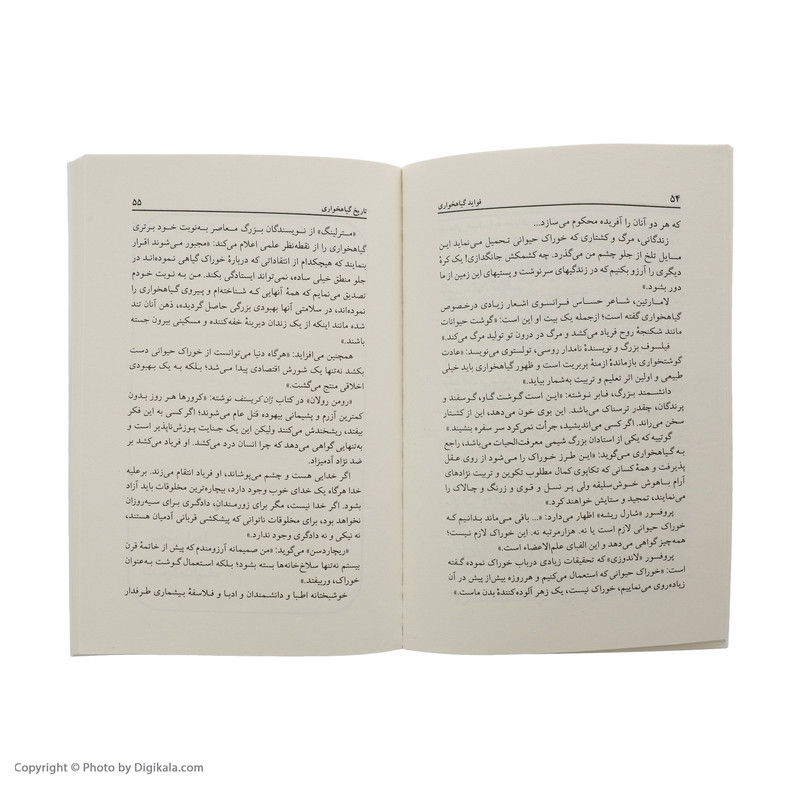 ۵۴
فواید گیاهخواری
که هر دو آنان را آفریده محکوم می‌سازد...
زندگانی، مرگ و کشتاری که خوراک حیوانی تحمیل می‌نماید این
مسایل تلخ از جلو چشم من می‌گذرد. چه کشمکش جانگدازی! یک کرهٔ
دیگری را آرزو بکنیم که در زندگیهای سرنوشت و پستیهای این زمین از ما
دور بشود.»
لامارتین، شاعر حساس فرانسوی اشعار زیادی درخصوص
گیاهخواری گفته است؛ ازجمله یک بیت او این است: «گوشت حیوانات
مانند شکنجهٔ روح فریاد می‌کشد و مرگ در درون تو تولید مرگ می‌کند.»
فیلسوف بزرگ و نویسندهٔ نامدار روسی، تولستوی می‌نویسد: «عادت
گوشتخواری بازماندهٔ ازمنهٔ بربریت است و ظهور گیاهخواری باید خیلی
طبیعی و اولین اثر تعلیم و تربیت به‌شمار بیاید.»
دانشمند بزرگ، فابر نوشته: «این است گوشت گاو، گوسفند و
پرندگان، چقدر ترسناک می‌باشد. این بوی خون می‌دهد، این از کشتار
سخن می‌راند. اگر کسی می‌اندیشید، جرأت نمی‌کرد سر سفره بنشیند.»
گوتییه که یکی از استادان بزرگ شیمی معرفت‌الحیات می‌باشد، راجع
به گیاهخواری می‌گوید: «این طرز خوراک را می‌شود از روی عقل
پذیرفت و همهٔ کسانی که تکاپوی کمال مطلوب تکوین و تربیت نژادهای
آرام باهوش خوش‌سلیقه ولی پر نسل و قوی و زرنگ و چالاک را
می‌نمایند، تمجید و ستایش خواهند کرد.»
پروفسور «شارل ریشه» اظهار می‌دارد: «... باقی می‌ماند بدانیم که
خوراک حیوانی لازم است یا نه. هزارمرتبه نه. این خوراک لازم نیست؛
همه‌چیز گواهی می‌دهد و این الفبای علم‌الاعضاء است.»
پروفسور «لاندوزی» که تحقیقات زیادی درباب خوراک نموده گفته
است: «خوراک حیوانی که استعمال می‌کنیم و هرروزه بیش‌از پیش در آن
زیاده‌روی می‌نماییم، خوراک نیست، یک زهر آلوده‌کنندهٔ بدن ماست.»
تاریخ گیاهخواری
۵۵
«مترلینگ» از نویسندگان بزرگ معاصر به‌نوبت خود برتری
گیاهخواری را از نقطه‌نظر علمی اعلام می‌کند: «مجبور می‌شوند اقرار
بنمایند که هیچکدام از انتقاداتی که دربارهٔ خوراک گیاهی نموده‌اند در
جلو منطق خیلی ساده، نمی‌تواند ایستادگی بکند. من به نوبت خودم
تصدیق می‌نمایم که همهٔ آنهایی که شناخته‌ام و پیروی گیاهخواری را
نموده‌اند، در سلامتی آنها بهبودی بزرگی حاصل گردیده، ذهن آنان تند
شده مانند اینکه از یک زندان دیرینهٔ خفه‌کننده و مسکینی بیرون جسته
باشند.»
همچنین می‌افزاید: «هرگاه دنیا می‌توانست از خوراک حیوانی دست
بکشد نه‌تنها یک شورش اقتصادی پیدا می‌شد؛ بلکه به یک بهبودی
اخلاقی منتج می‌گشت.»
«رومن رولان» در کتاب ژان کریستف نوشته: «کرورها هر روز بدون
کمترین آزرم و پشیمانی بیهوده قتل عام می‌شوند؛ اگر کسی به این فکر
بیفتد، ریشخندش می‌کنند ولیکن این یک جنایت پوزش‌ناپذیر است و
به‌تنهایی گواهی می‌دهد که چرا انسان درد می‌کشد. او فریاد می‌کشد بر
ضد نژاد آدمیزاد.
اگر خدایی هست و چشم می‌پوشاند، او فریاد انتقام می‌زند. برعلیه
خدا هرگاه یک خدای خوب وجود دارد، بیچاره‌ترین مخلوقات باید آزاد
بشود. اگر خدا نیست، مگر برای زورمندان، دادگری برای سیه‌روزان
نخواهد بود، برای مخلوقات ناتوانی که پیشکشی قربانی آدمیان هستند،
نه نیکی و نه دادگری وجود ندارد.»
«ریچاردسن» می‌گوید: «من صمیمانه آرزومندم که پیش از خاتمهٔ قرن
بیستم نه‌تنها سلاخ‌خانه‌ها بسته بشود؛ بلکه استعمال گوشت به‌عنوان
خوراک، وربیفتد.»
خوشبختانه اطبا و دانشمندان و ادبا و فلاسفهٔ بیشماری طرفدار
Copyright © Photo by Digikala.com